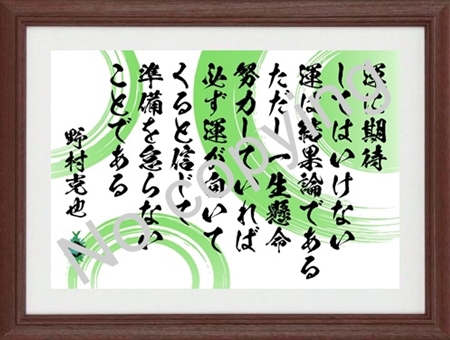 運に期待
してはいけない
運は結果論である
ただし一生懸命
努力していれば
必ず運が向いて
くると信じて
準備を怠らない
ことである
野村克也
No copying